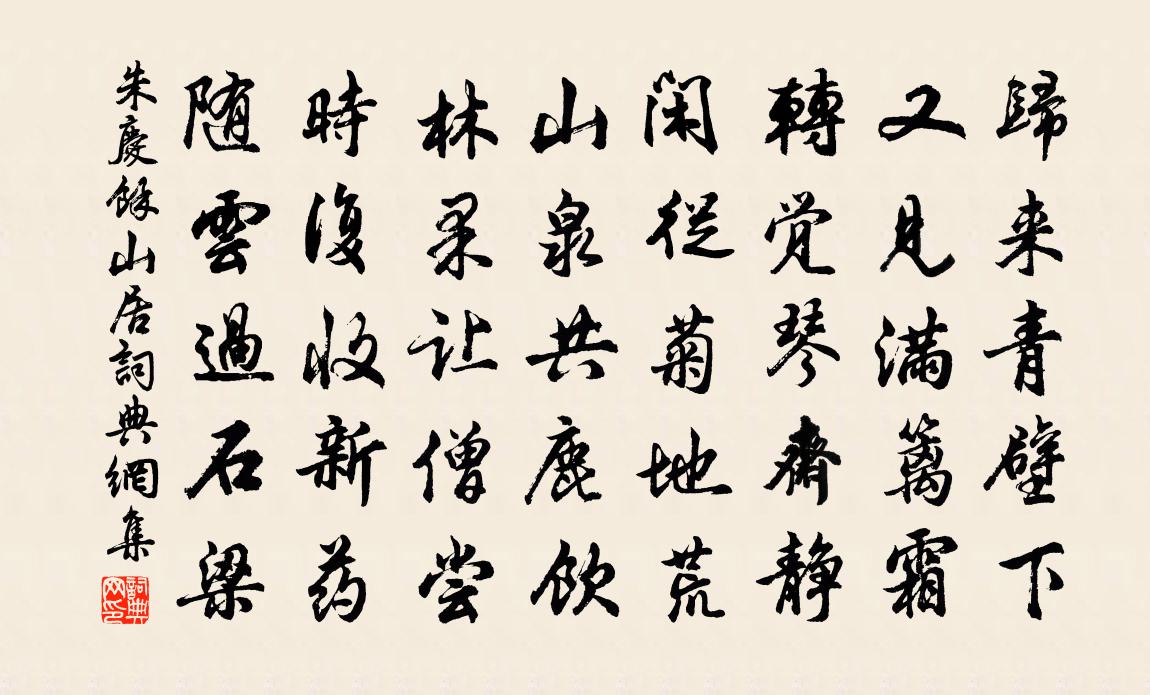 歸来青壁下
又見满籬霜
轉觉琴齋静
閑從菊地荒
山泉共鹿飲
林果让僧尝
時復收新药
随雲過石梁
朱慶餘山居詞典網集
詞典网印